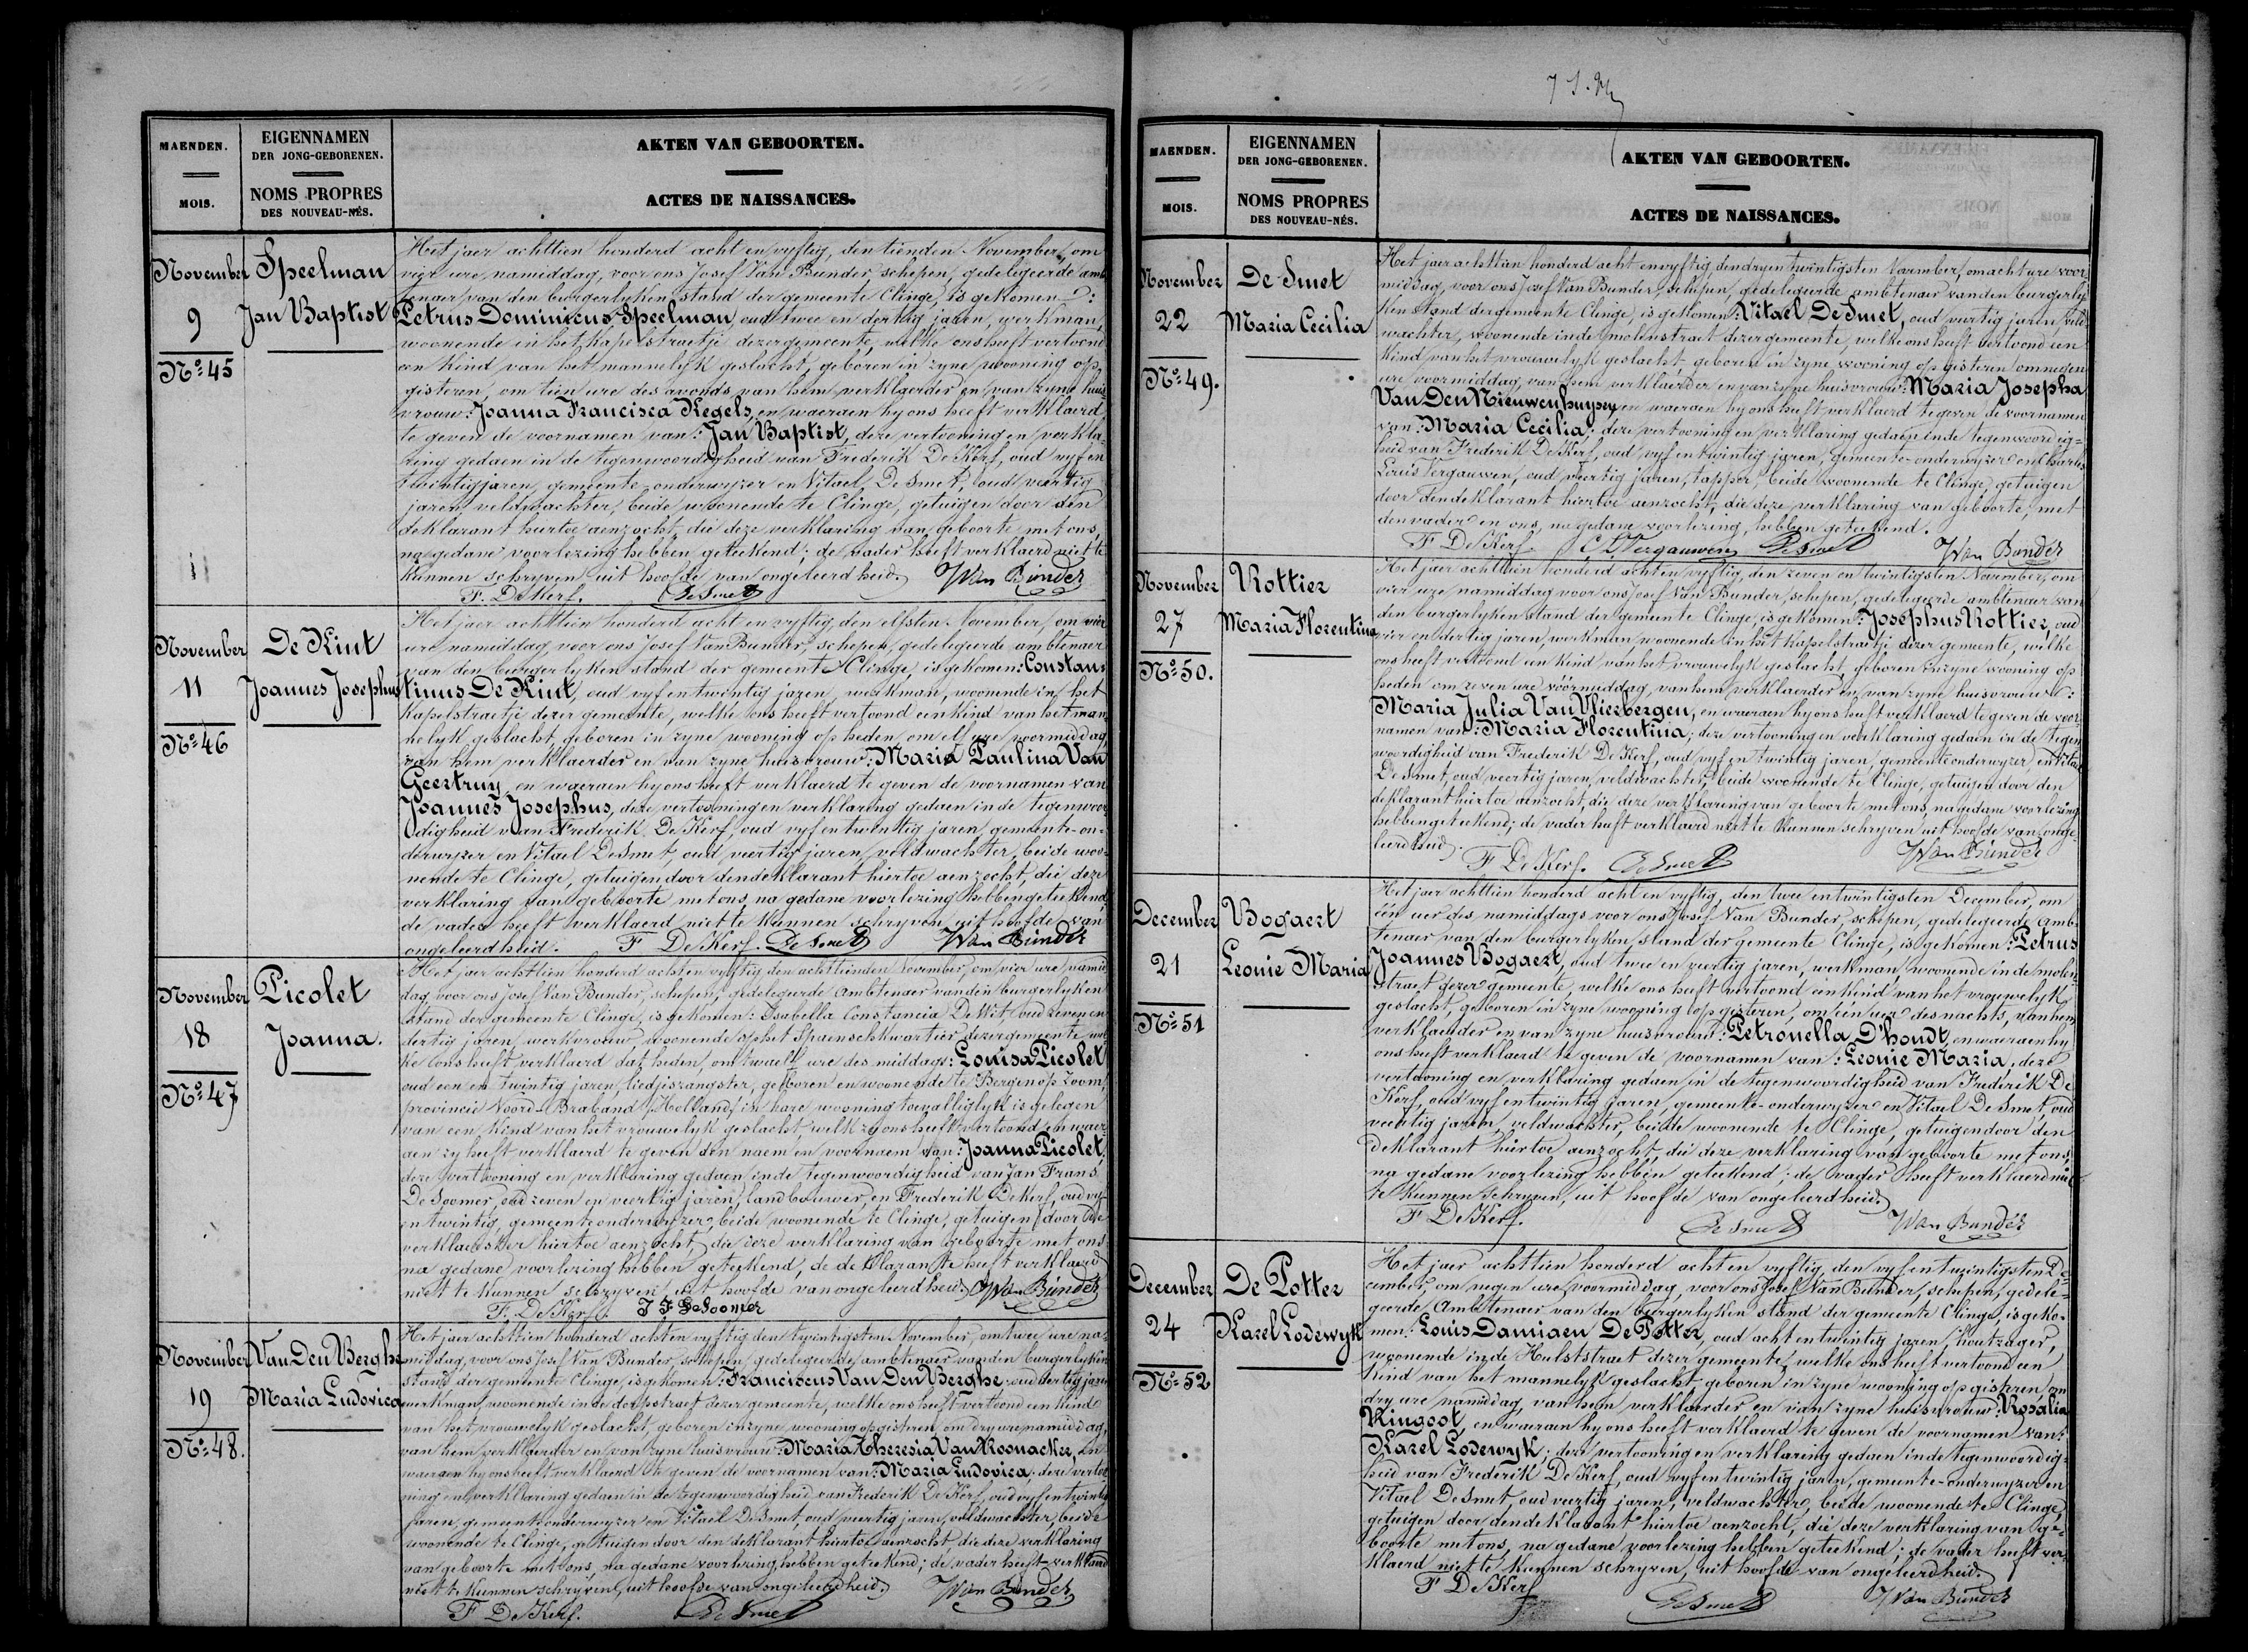 MAENDEN.
MOIS.
EIGENNAMEN
DER JONG-GEBORENEN.
NOMS PROPRES
DES NOUVEAU-NÉS.
AKTEN VAN GEBOORTEN.
ACTES DE NAISSANCES.
November
9
No. 45
Speelman
Jan Baptist
Het jaer achttien honderd acht en vyftig, den tienden November, om
vier ure, namiddag, voor ons Josef Van Bunder, schepen, gedelegeerde amb-
tenaer van den burgerlyken stand der gemeente Clinge, is gekomen:
Petrus Dominicus Speelman, oud twee en dertig jaren, werkman,
woonende in het kapelstraetje dezer gemeente, welke ons heeft vertoond
een kind van het mannelyk geslacht, geboren in zyne wooning op
gisteren, om tien ure des avonds, van hem verklaerder en van zyne huis-
vrouw: Joanna Francisca Kegels, en waeraen hy ons heeft verklaerd
te geven de voornamen van: Jan Baptist, deze vertooning en verkla-
ring gedaen in de tegenwoordigheid van Frederik De Kerf, oud vyf en
twintig jaren, gemeente-onderwyzer en Vitael De Smet, oud veertig
jaren, veldwachter, beide woonende te Clinge, getuigen door den
deklarant hiertoe aenzocht, die deze verklaring van geboorte met ons,
na gedane voorlezing hebben geteekend; de vader heeft verklaerd niet te
kunnen schryven uit hoofde van ongeleerdheid. J Van Bunder
F. De Kerf. De Smet
November
11
No. 46
De Kint
Joannes Josephus
Het jaer achttien honderd acht en vyftig, den elfsten November, om vier
ure namiddag, voor ons Josef Van Bunder, schepen, gedelegeerde ambtenaer
van den burgerlyken stand der gemeente Clinge, is gekomen: Constan-
tinus De Kint, oud vyf en twintig jaren, werkman, woonende in het
kapelstraetje dezer gemeente, welke ons heeft vertoond een kind van het man-
nelyk geslacht, geboren in zyne wooning op heden, om elf ure voormiddag
van hem verklaerder en van zyne huisvrouw: Maria Paulina Van
Geertruy, en waeraen hy ons heeft verklaerd te geven de voornamen van
Joannes Josephus, deze vertooning en verklaring gedaen in de tegenwoor-
digheid van Frederik De Kerf, oud vyf en twintig jaren, gemeente-on-
derwyzer en Vitael De Smet, oud veertig jaren, veldwachter, beide woo-
nende te Clinge, getuigen door den deklarant hiertoe aenzocht, die deze
verklaring van geboorte met ons, na gedane voorlezing hebben geteekend,
de vader heeft verklaerd niet te kunnen schryven, uit hoofde van
ongeleerdheid. F De Kerf. De Smet J Van Bunder
November
18
No. 47
Picolet
Joanna.
Het jaer achttien honderd acht en vyftig den achttienden November, om vier ure, namid-
dag, voor ons Josef Van Bunder, schepen, gedelegeerde ambtenaer van den burgerlyken
stand der gemeente Clinge, is gekomen: Isabella Constancia De Wit, oud zeven en
dertig jaren, werkvrouw, woonende op het Spaensch kwartier dezer gemeente wel-
ke ons heeft verklaerd dat heden, om twaelf ure des middags: Louisa Picolet
oud een en twintig jaren, liedjeszangster, geboren en woonende te Bergen op Zoom,
provincie Noord-Braband (Holland) in hare wooning toevalliglyk is gelegen
van een kind van het vrouwelyk geslacht, welk zy ons heeft vertoond en waer-
aen zy heeft verklaerd te geven den naem en voornaem van: Joanna Picolet,
deze vertooning en verklaring gedaen in de tegenwoordigheid van Jan Frans
De Soomer, oud zeven en veertig jaren, landbouwer, en Frederik De Kerf, oud vyf
en twintig, gemeente onderwyzer, beide woonende te Clinge, getuigen door de
verklaerster hiertoe aenzocht, die deze verklaring van geboorte met ons
na gedane voorlezing hebben geteekend, de deklarante heeft verklaerd
niet te kunnen schryven uit hoofde van ongeleerdheid. J Van Bunder
F. De Kerf. J F De Soomer
November
19
No. 48.
Van Den Berghe
Maria Ludovica
Het jaer achttien honderd acht en vyftig den twintigsten November, om twee ure na-
middag, voor ons Josef Van Bunder, schepen, gedelegeerde ambtenaer van den burgerlyken
stand der gemeente Clinge, is gekomen: Franciscus Van Den Berghe, oud dertig jaren
werkman, woonende in de dorpstraet dezer gemeente, welke ons heeft vertoond een kind
van het vrouwelyk geslacht, geboren in zyne wooning op gisteren, om dry ure namiddag,
van hem verklaerder en van zyne huisvrouw: Maria Theresia Van Roonacker, en
waeraen hy ons heeft verklaerd te geven de voornamen van: Maria Ludovica; deze vertoo-
ning en verklaring gedaen in de tegenwoordigheid van Frederik De Kerf, oud vyf en twintig
jaren, gemeente onderwyzer en Vitael De Smet, oud veertig jaren, veldwachter, beide
woonende te Clinge, getuigen door den deklarant hiertoe aenzocht, die deze verklaring
van geboorte met ons, na gedane voorlezing hebben geteekend; de vader heeft verklaerd
niet te kunnen schryven, uit hoofde van ongeleerdheid. J Van Bunder
F De Kerf. De Smet
MAENDEN.
MOIS.
EIGENNAMEN
DER JONG-GEBORENEN.
NOMS PROPRES
DES NOUVEAU-NÉS.
AKTEN VAN GEBOORTEN.
ACTES DE NAISSANCES.
November
22
No. 49.
De Smet
Maria Cecilia
Het jaer achttien honderd acht en vyftig, den dry en twintigsten November, om acht ure voor-
middag, voor ons Josef Van Bunder, schepen, gedelegeerde ambtenaer van den burgerly-
ken stand der gemeente Clinge, is gekomen: Vitael De Smet, oud veertig jaren veld-
wachter, woonende in de molenstraet dezer gemeente, welke ons heeft vertoond een
kind van het vrouwelyk geslacht, geboren in zyne wooning op gisteren om negen
ure voormiddag, van hem verklaerder en van zyne huisvrouw: Maria Josepha
Van Den Nieuwenhuysen, en waeraen hy ons heeft verklaerd te geven de voornamen
van: Maria Cecilia; deze vertooning en verklaring gedaen in de tegenwoordig-
heid van Frederik De Kerf, oud vyf en twintig jaren, gemeente-onderwyzer en Charles
Louis Vergauwen, oud veertig jaren, tapper, beide woonende te Clinge, getuigen
door den deklarant hiertoe aenzocht, die deze verklaring van geboorte, met
den vader en ons, na gedane voorlezing, hebben geteekend.
F De Kerf. C L Vergauwen De Smet J Van Bunder
November
27
No. 50.
Rottier
Maria Florentina
Het jaer achttien honderd acht en vyftig, den zeven en twintigsten November, om
vier ure, namiddag voor ons Josef Van Bunder, schepen, gedelegeerde ambtenaer van
den burgerlyken stand der gemeente Clinge, is gekomen: Josephus Rottier, oud
vier en dertig jaren, werkman, woonende in het kapelstraetje dezer gemeente, welke
ons heeft vertoond een kind van het vrouwelyk geslacht, geboren in zyne wooning op
heden om zeven ure vóórmiddag, van hem verklaerder en van zyne huisvrouw:
Maria Julia Van Vlierbergen, en waeraen hy ons heeft verklaerd te geven de voor-
namen van: Maria Florentina; deze vertooning en verklaring gedaen in de tegen-
woordigheid van Frederik De Kerf, oud vyf en twintig jaren, gemeente onderwyzer, en Vitael
De Smet, oud veertig jaren, veldwachter, beide woonende te Clinge, getuigen door den
deklarant hiertoe aenzocht, die deze verklaring van geboorte met ons, na gedane voorlezing
hebben geteekend; de vader heeft verklaerd niet te kunnen schryven uit hoofde van onge-
leerdheid.
F De Kerf. De Smet J Van Bunder
December
21
No. 51
Bogaert
Leonie Maria
Het jaer achttien honderd acht en vyftig, den twee en twintigsten December, om
één uer des namiddags voor ons Josef Van Bunder, schepen, gedelegeerde amb-
tenaer van den burgerlyken stand der gemeente Clinge, is gekomen: Petrus
Joannes Bogaert, oud twee en veertig jaren, werkman, woonende in de molen-
straet dezer gemeente, welke ons heeft vertoond een kind van het vrouwelyk
geslacht, geboren in zyne wooning op gisteren, om één uer des nachts, van hem
verklaerder en van zyne huisvrouw: Petronella D'hondt, en waeraen hy
ons heeft verklaerd te geven de voornamen van: Leonie Maria, deze
vertooning en verklaring gedaen in de tegenwoordigheid van Frederik De
Kerf, oud vyf en twintig jaren, gemeente-onderwyzer en Vitael De Smet, oud
veertig jaren, veldwachter, beide woonende te Clinge, getuigen door den
deklarant hiertoe aenzocht, die deze verklaring van geboorte met ons,
na gedane voorlezing hebben geteekend; de vader heeft verklaerd niet
te kunnen schryven, uit hoofde van ongeleerdheid.
F De Kerf. De Smet J Van Bunder
December
24
No. 52
De Potter
Karel Lodewyk
Het jaer achttien honderd acht en vyftig, den vyf en twintigsten De-
cember, om negen ure, voormiddag, voor ons Josef Van Bunder, schepen, gedele-
geerde Ambtenaer van den burgerlyken stand der gemeente Clinge, is geko-
men: Louis Damiaen De Potter, oud acht en twintig jaren, houtzager,
woonende in de Hulststraet dezer gemeente, welke ons heeft vertoond een
kind van het mannelyk geslacht, geboren in zyne wooning op gisteren, om
dry ure namiddag, van hem verklaerder en van zyne huisvrouw: Rosalia
Ringoot, en waeraen hy ons heeft verklaerd te geven de voornamen van:
Karel Lodewyk; deze vertooning en verklaring gedaen in de tegenwoordig-
heid van Frederik De Kerf, oud vyf en twintig jaren, gemeente-onderwyzer en
Vitael De Smet, oud veertig jaren, veldwachter, beide woonende te Clinge,
getuigen door den deklarant hiertoe aenzocht, die deze verklaring van ge-
boorte met ons, na gedane voorlezing hebben geteekend; de vader heeft ver-
klaerd niet te kunnen schryven, uit hoofde van ongeleerdheid.
F De Kerf De Smet J Van Bunder